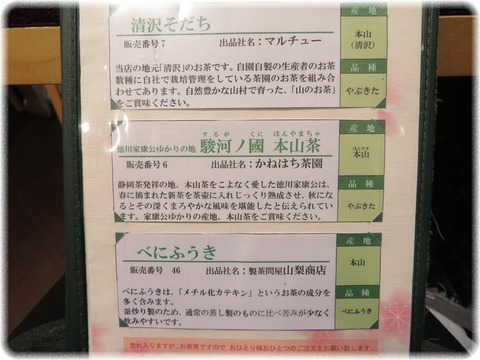 清沢そだち
販売番号 7 出品会社名:マルチュー
当店の地元「清沢」のお茶です。自園自製の生産者のお茶
数種に自社で栽培管理をしている茶園のお茶を組み合
わせてあります。自然豊かな山村で育った、「山のお茶」
をご賞味ください。
産 地
本山
(清沢)
品 種
やぶきた
徳川家康公ゆかりの地 駿河ノ國 本山茶
するが くに ほんやまちゃ
販売番号 6 出品会社名:かねはち茶園
静岡茶発祥の地、本山茶をこよなく愛した徳川家康公は、
春に摘まれた新茶を茶壷に入れじっくり熟成させ、秋にな
るとその深くまろやかな風味を堪能したと伝えられていま
す。家康公ゆかりの産地、本山茶をご賞味ください。
産 地
ほんやま
本山
品 種
やぶきた
べにふうき
販売番号 46 出品会社名:製茶問屋山梨商店
べにふうきは、「メチル化カテキン」というお茶の成分を
多く含みます。
釜炒り製のため、通常の蒸し製のものに比べ苦みが少なく
飲みやすいです。
産 地
本山
品 種
べにふうき
恐れ入りますが、お茶席ですので おひとり様おひとつのご注文をお願い致します。